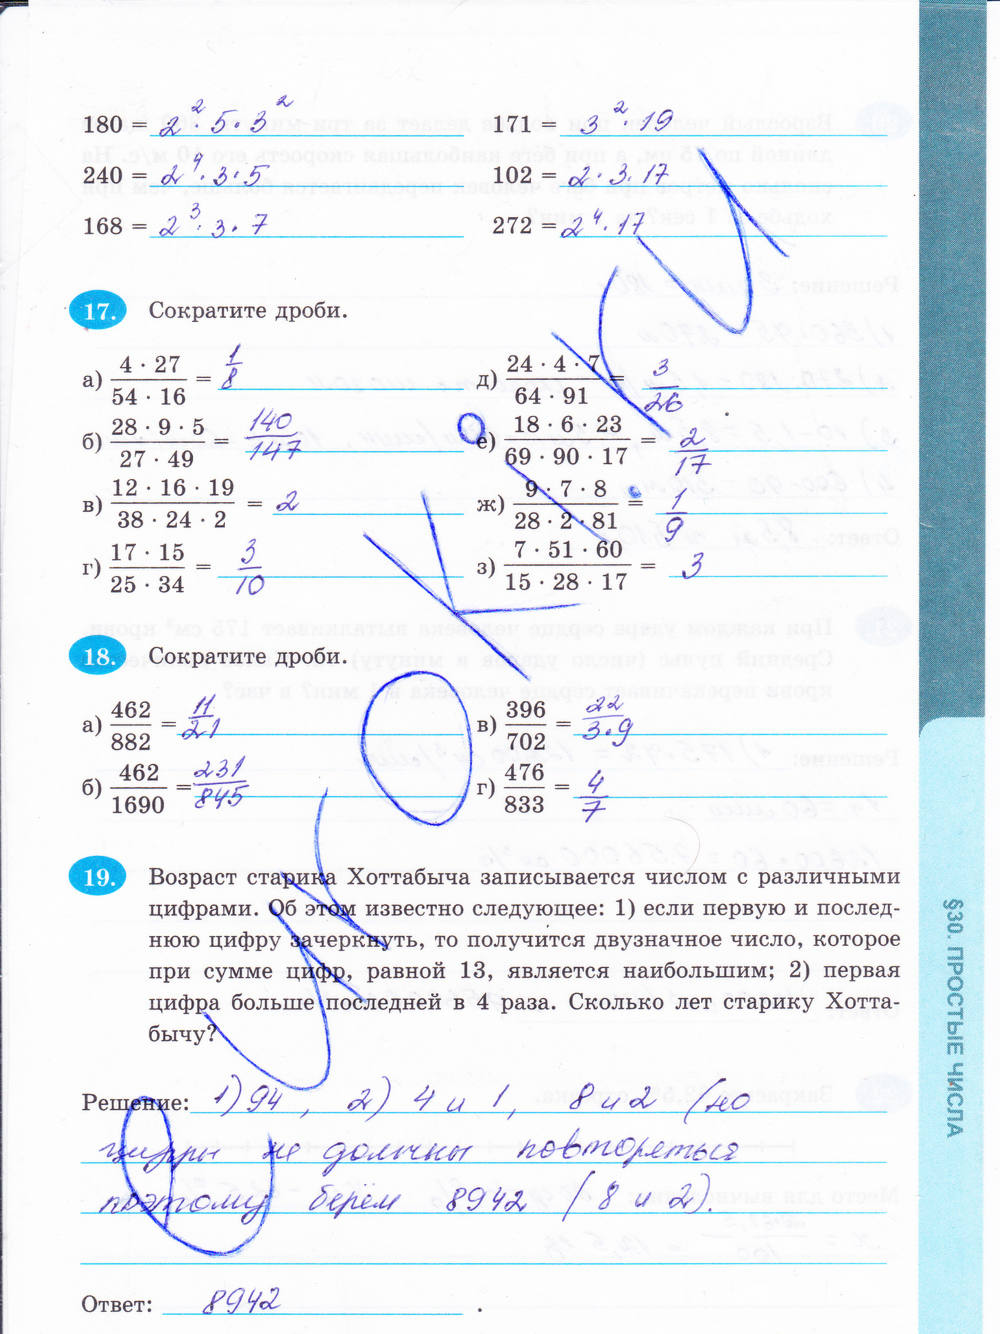 180 = 2²·5·3²
171 = 3²·19
240 = 2⁴·3·5
102 = 2·3·17
168 = 2³·3·7
272 = 2⁴·17
17. Сократите дроби.
а) (4 · 27)/(54 · 16) = 1/8
д) (24 · 4 · 7)/(64 · 91) = 3/26
б) (28 · 9 · 5)/(27 · 49) = 140/147
е) (18 · 6 · 23)/(69 · 90 · 17) = 2/17
в) (12 · 16 · 19)/(38 · 24 · 2) = 2
ж) (9 · 7 · 8)/(28 · 2 · 81) = 1/9
г) (17 · 15)/(25 · 34) = 3/10
з) (7 · 51 · 60)/(15 · 28 · 17) = 3
18. Сократите дроби.
а) 462/882 = 11/21
в) 396/702 = 22/3·9
б) 462/1690 = 231/845
г) 476/833 = 4/7
19. Возраст старика Хоттабыча записывается числом с различными
цифрами. Об этом известно следующее: 1) если первую и послед-
нюю цифру зачеркнуть, то получится двузначное число, которое
при сумме цифр, равной 13, является наибольшим; 2) первая
цифра больше последней в 4 раза. Сколько лет старику Хотта-
бычу?
Решение: 1) 94, 2) 4 и 1, 8 и 2 (но
цифры не должны повторяться
поэтому берём 8942 (8 и 2).
Ответ: 8942.
§30. ПРОСТЫЕ ЧИСЛА